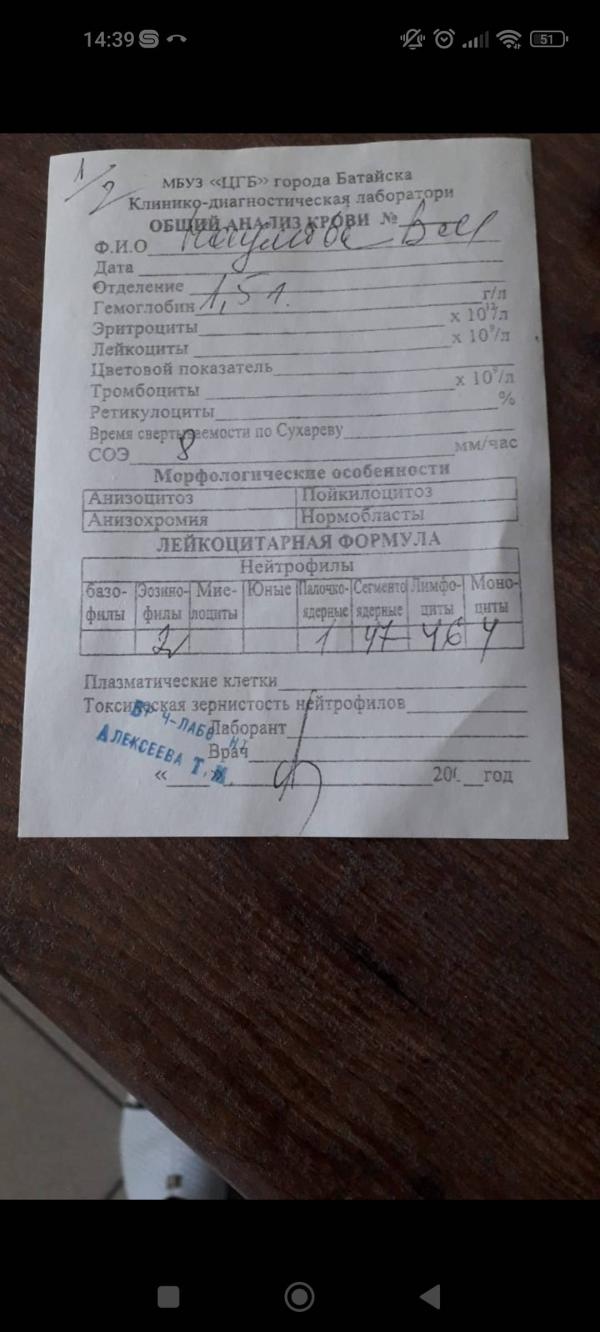 14:39
51
1/2
МБУЗ «ЦГБ» города Батайска
Клинико-диагностическая лаборатори
ОБЩИЙ АНАЛИЗ КРОВИ №
Ф.И.О
Дата
Отделение
1,5 л.
Гемоглобин г/л
Эритроциты х 10¹²/л
Лейкоциты х 10⁹/л
Цветовой показатель
Тромбоциты х 10⁹/л
Ретикулоциты %
Время свертываемости по Сухареву
СОЭ 8 мм/час
Морфологические особенности
Анизоцитоз Пойкилоцитоз
Анизохромия Нормобласты
ЛЕЙКОЦИТАРНАЯ ФОРМУЛА
Нейтрофилы
базо- Эозино- Мие- Юные Палочко- Сегменто Лимфо- Моно-
филы филы лоциты ядерные ядерные циты циты
2 1 47 46 4
Плазматические клетки
Токсическая зернистость нейтрофилов
Лаборант
Врач
АЛЕКСЕЕВА Т.
« » 200 год